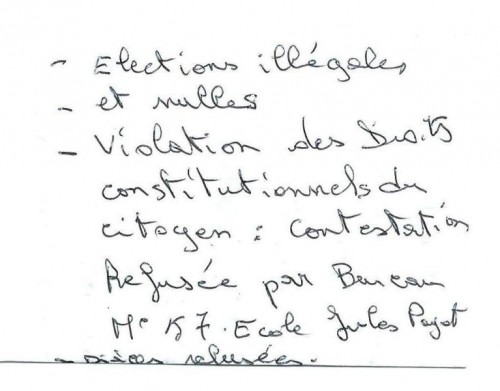 - Elections illégales
- et nulles
- Violation des Droits
constitutionnels du
citoyen : contestation
Refusée par Bureau
57. Ecole Jules Payot
- refusées.